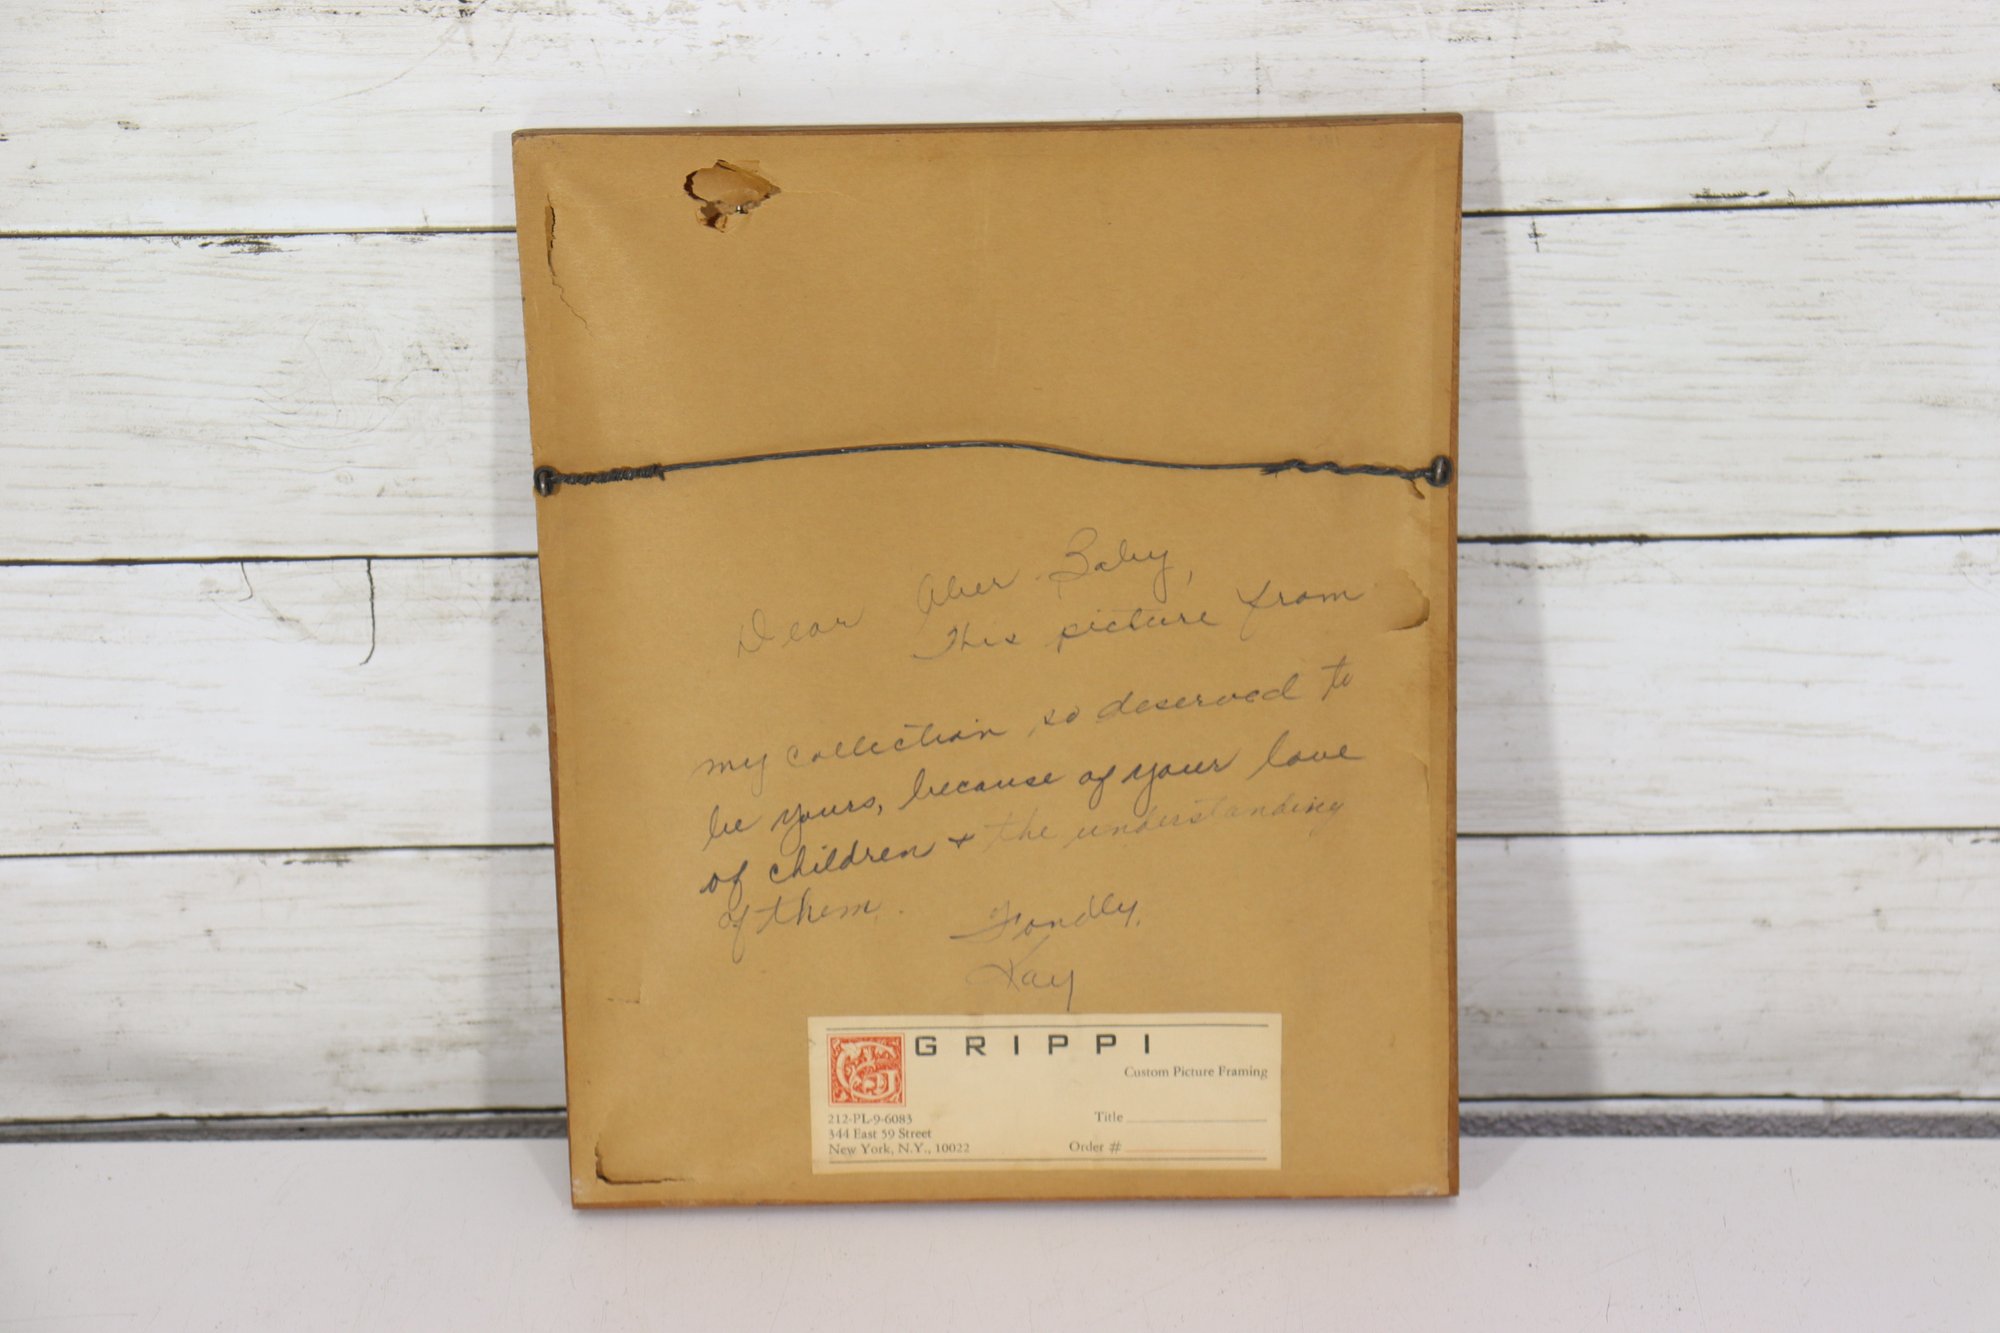 Dear Aber Baby,
This picture from
my collection so deserved to
be yours, because of your love
of children + the understanding
of them.
Fondly,
Kay
GRIPPI
Custom Picture Framing
212-PL-9-6083
344 East 59 Street
New York, N.Y., 10022
Title
Order #